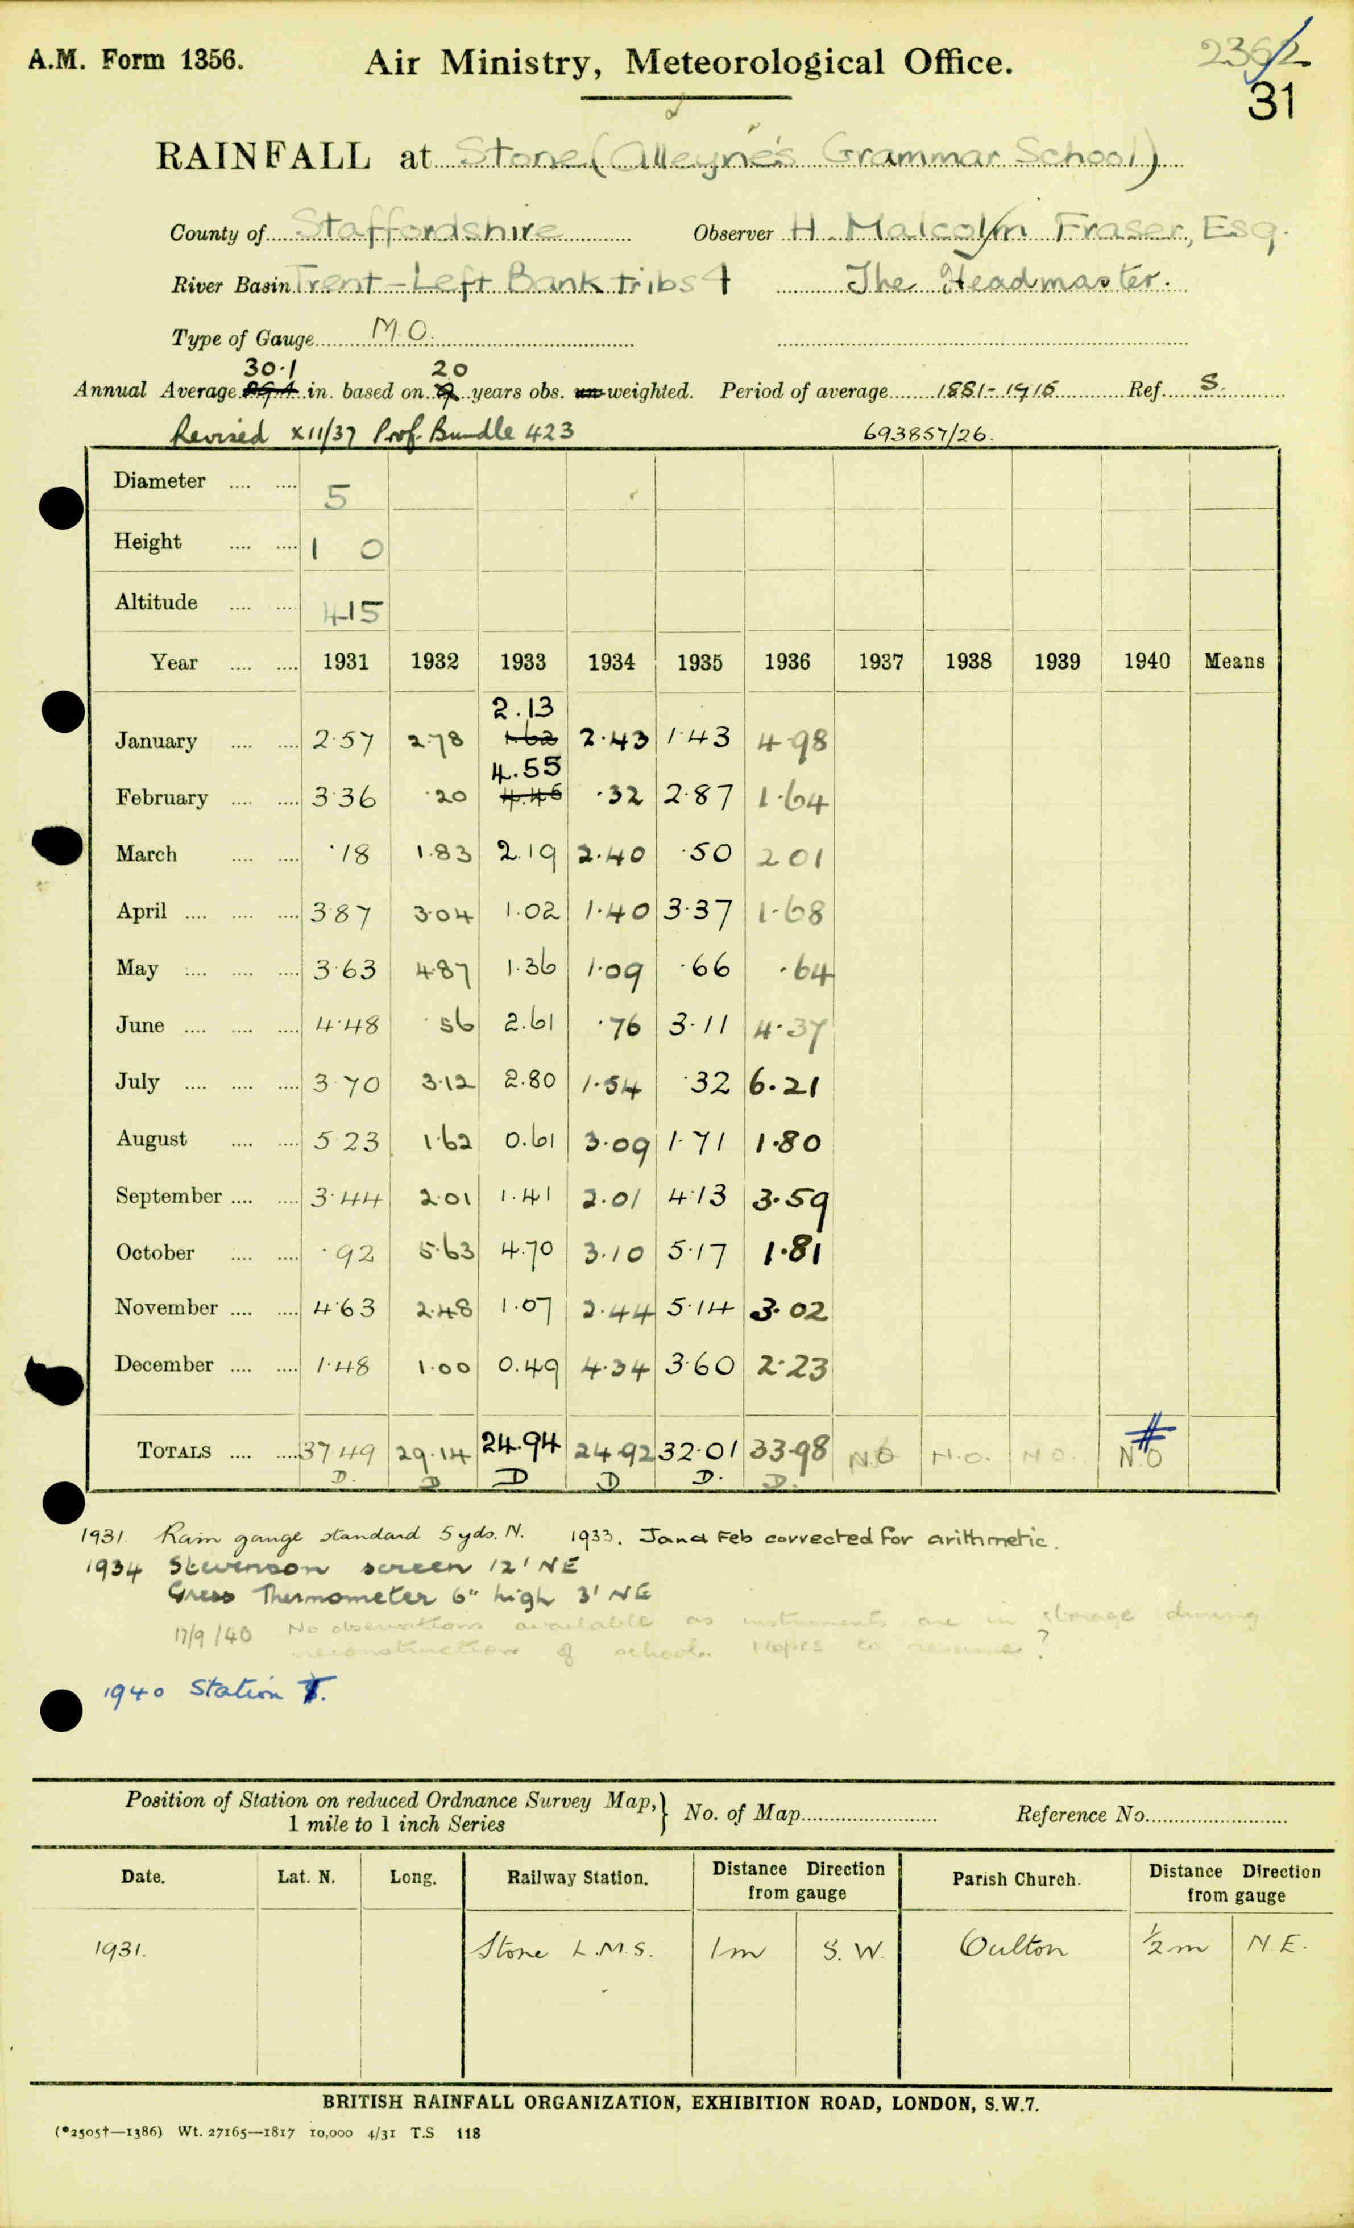 A.M. Form 1356.
Air Ministry, Meteorological Office.
2362
31
RAINFALL at Stone (Alleyne's Grammar School)
County of Staffordshire Observer H. Malcolm Fraser, Esq.
River Basin Trent-Left Bank tribs 4 The Headmaster.
Type of Gauge M.O.
30.1 20
Annual Average in. based on years obs. un-weighted. Period of average 1881-1915 Ref. S.
Revised XII/37 Prof. Bundle 423 693857/26.
Diameter .... .... 5
Height .... .... 1 0
Altitude .... .... 415
Year .... .... 1931 1932 1933 1934 1935 1936 1937 1938 1939 1940 Means
2.13
January .... .... 2.57 2.78 1.62 2.43 1.43 4.98
4.55
February .... .... 3.36 .20 4.46 .32 2.87 1.64
March .... .... .18 1.83 2.19 2.40 .50 2.01
April .... .... .... 3.87 3.04 1.02 1.40 3.37 1.68
May .... .... .... 3.63 4.87 1.36 1.09 .66 .64
June .... .... .... 4.48 .56 2.61 .76 3.11 4.37
July .... .... .... 3.70 3.12 2.80 1.54 .32 6.21
August .... .... 5.23 1.62 0.61 3.09 1.71 1.80
September .... .... 3.44 2.01 1.41 2.01 4.13 3.59
October .... .... .92 5.63 4.70 3.10 5.17 1.81
November .... .... 4.63 2.48 1.07 2.44 5.14 3.02
December .... .... 1.48 1.00 0.49 4.34 3.60 2.23
#
TOTALS .... .... 37.49 29.14 24.94 24.92 32.01 33.98 N.O N.O. N.O. N.O
D. D D D D. D.
1931 Rain gauge standard 5 yds. N. 1933. Jan & Feb corrected for arithmetic.
1934 Stevenson screen 12' NE
Grass Thermometer 6" high 3' NE
17/9/40 No observations available as instruments are in storage during
reconstruction of school. Hopes to resume?
1940 Station T.
Position of Station on reduced Ordnance Survey Map,} No. of Map Reference No.
1 mile to 1 inch Series
Date. Lat. N. Long. Railway Station. Distance Direction from gauge Parish Church. Distance Direction from gauge
1931. Stone L.M.S. 1m S.W. Oulton ½m N.E.
BRITISH RAINFALL ORGANIZATION, EXHIBITION ROAD, LONDON, S.W.7.
(*2505†—1386) Wt. 27165—1817 10,000 4/31 T.S 118